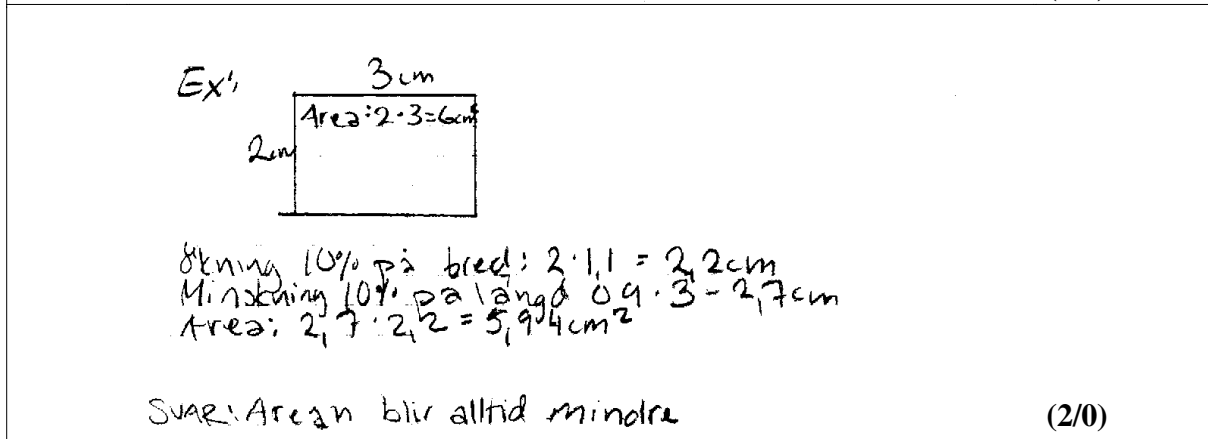 Ex:
3 cm
Area: 2·3=6cm²
2cm
Ökning 10% på bred: 2·1,1 = 2,2cm
Minskning 10% på längd 0,9·3 = 2,7cm
Area: 2,7·2,2 = 5,94cm²
SVAR: Arean blir alltid mindre
(2/0)